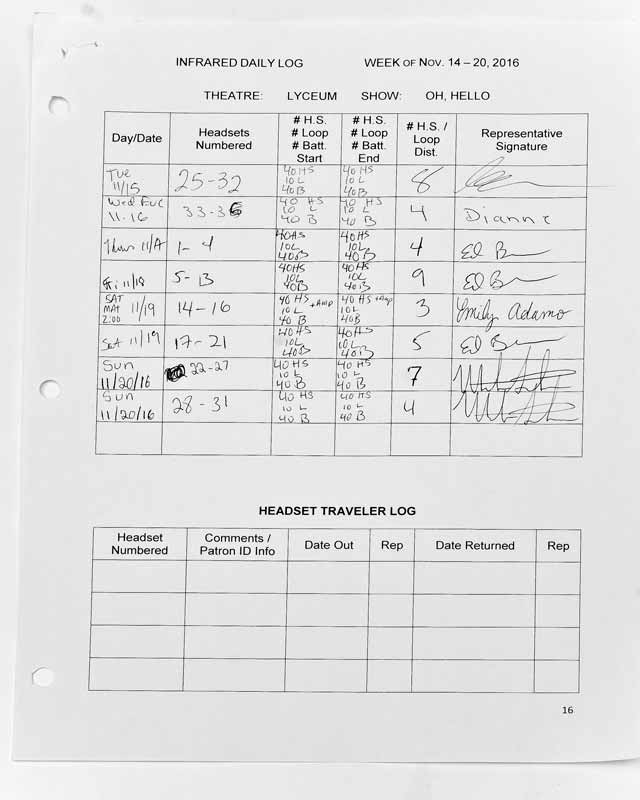 INFRARED DAILY LOG WEEK OF NOV. 14 – 20, 2016
THEATRE: LYCEUM SHOW: OH, HELLO
Day/Date
Headsets
Numbered
# H.S.
# Loop
# Batt.
Start
# H.S.
# Loop
# Batt.
End
# H.S. /
Loop
Dist.
Representative
Signature
Tue
11/15
25-32
40 HS
10 L
40 B
40 HS
10 L
40 B
8
Wed Eve
11.16
33-36
40 HS
10 L
40 B
40 HS
10 L
40 B
4
Dianne
Thurs 11/17
1- 4
40 HS
10L
40 B
40 HS
10L
40 B
4
Ed
Fri 11/18
5- 13
40HS
10L
40B
40HS
10L
40B
9
Ed
SAT
MAT 11/19
2:00
14-16
40 HS + Amp
10 L
40 B
40 HS + Amp
10 L
40B
3
Emily Adamo
Sat 11/19
17-21
40 HS
10L
40B
40 HS
10L
40B
5
Ed
Sun
11/20/16
22-27
40 HS
10 L
40 B
40 HS
10 L
40 B
7
Sun
11/20/16
28 - 31
40 HS
10 L
40 B
40 HS
10 L
40 B
4
HEADSET TRAVELER LOG
Headset
Numbered
Comments /
Patron ID Info
Date Out
Rep
Date Returned
Rep
16